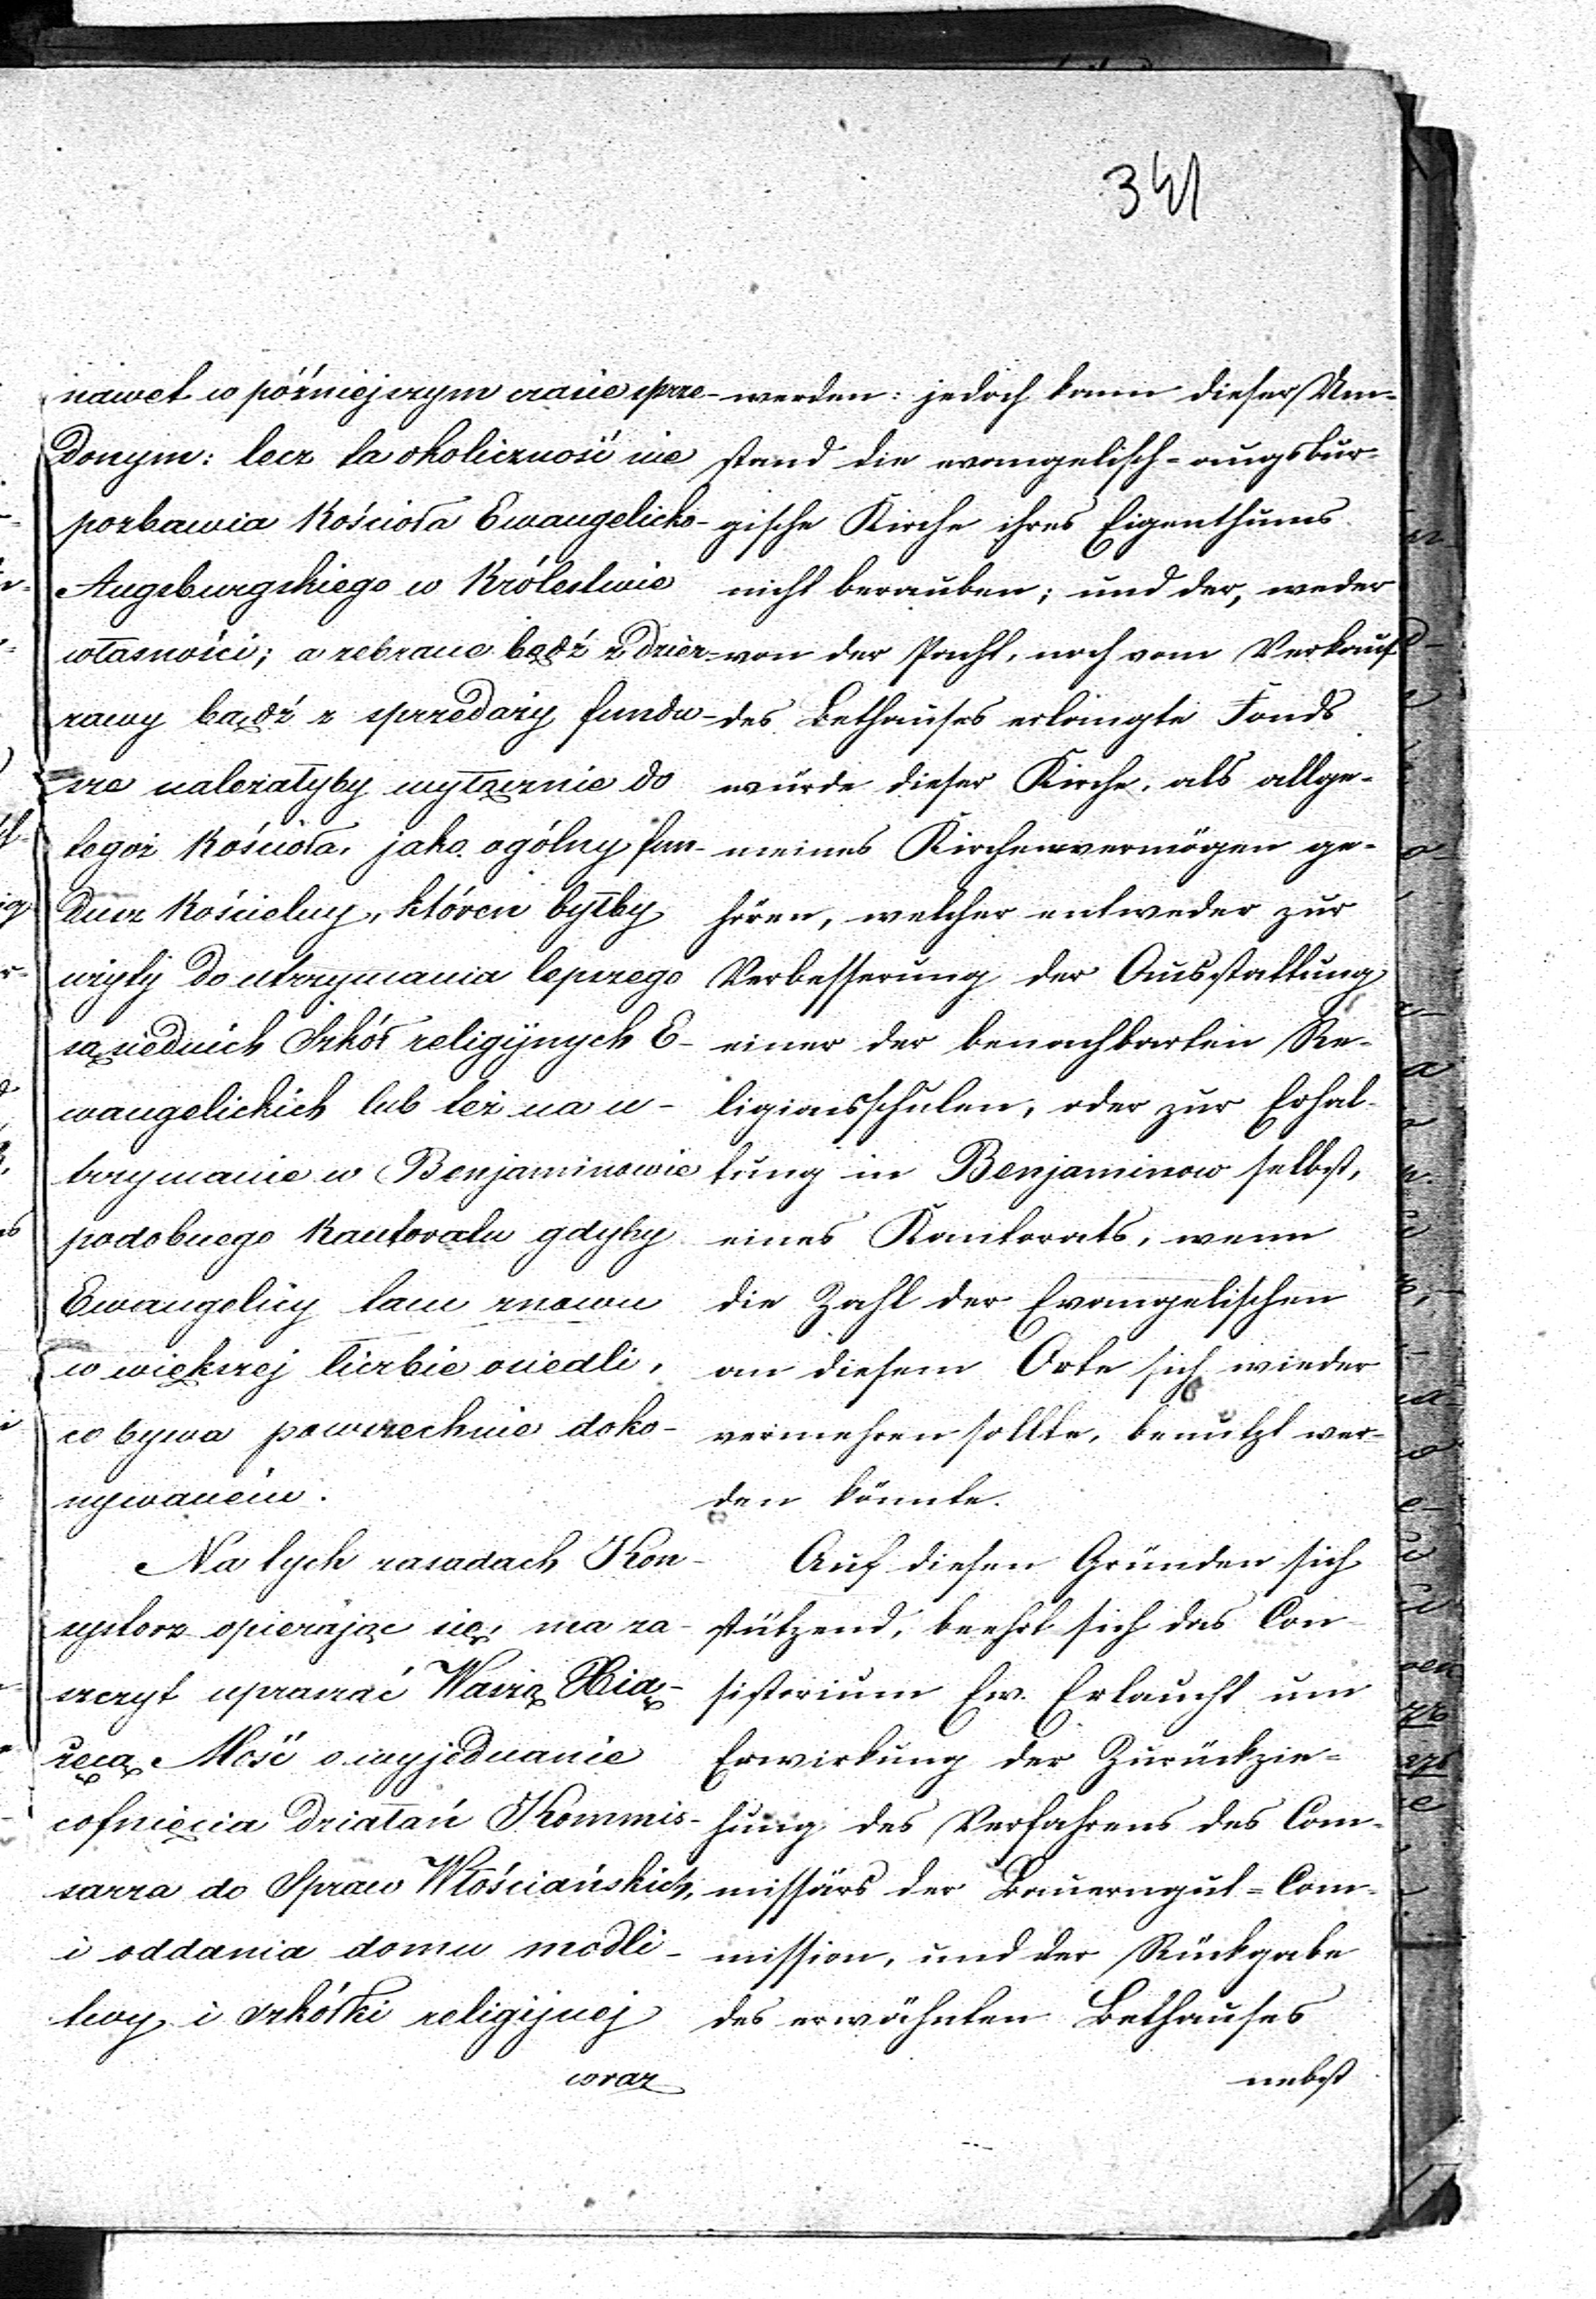 341
nawet w późniejszym czasie sprze-
donym: lecz ta okoliczność nie
pozbawia Kościoła Ewangelicko-
Augsburgskiego w Królestwie
własności; a zebrane bądź z dzier-
żawy bądź z sprzedaży fundu-
sze należałyby wyłącznie do
tegoż Kościoła, jako ogólny fun-
dusz Kościelny, któren byłby
użyty do utrzymania lepszego
sąsiednich Szkół religijnych E-
wangelickich lub też na u-
trzymanie w Benjaminowie
podobnego Kantoratu gdyby
Ewangelicy tam znowu
w większej liczbie osiedli,
co bywa powszechnie doko-
nywanem.
Na tych zasadach Kon-
systorz opierając się, ma za-
szczyt upraszać Waszą Xią-
żęcą Mość o wyjednanie
cofnięcia działań Kommis-
sarza do Spraw Włościańskich,
i oddania domu modli-
twy i szkółki religijnej
wraz
werden: jedoch kann dieser Um-
stand die evangelisch-augsbur-
gische Kirche ihres Eigenthums
nicht berauben; und der, weder
von der Pacht, noch vom Verkauf
des Bethauses erlangte Fonds
würde dieser Kirche, als allge-
meines Kirchenvermögen ge-
hören, welcher entweder zur
Verbesserung der Ausstattung
einer der benachbarten Re-
ligionsschulen, oder zur Erhal-
tung in Benjaminow selbst,
eines Kantorats, wenn
die Zahl der Evangelischen
an diesem Orte sich wieder
vermehren sollte, benutzt wer-
den könnte.
Auf diesen Gründen sich
stützend, beehrt sich das Con-
sistorium Ew. Erlaucht um
Erwirkung der Zurückzie-
hung des Verfahrens des Com-
missärs der Bauerngut-Com-
mission, und der Rückgabe
des erwähnten Bethauses
nebst